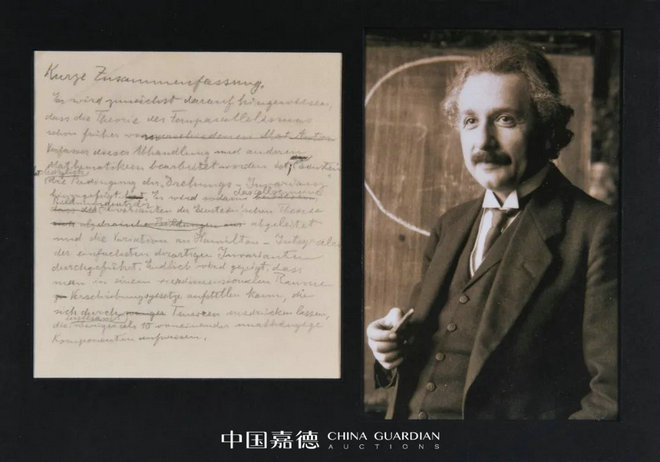 Kurze Zusammenfassung.
Es wird zunächst darauf hingewiesen,
dass die Theorie des Fernparallelismus
schon früher von
Verfasser dieser Abhandlung und anderen
Mathematikern bearbeitet worden ist,
die Bedingung der Drehungs-Invarianz
Es wird sodann das allgemeine
Invarianten der Einstein'schen Theorie
abgeleitet
und die Variation am Hamilton-Integral
der einfachsten derartigen Invarianten
durchgeführt. Endlich wird gezeigt, dass
man in einem vierdimensionalen Raume
Verschiebungsgesetze aufstellen kann, die
sich durch Tensoren ausdrücken lassen,
die weniger als 10 voneinander unabhängige
Komponenten aufweisen.
中国嘉德 CHINA GUARDIAN
AUCTIONS